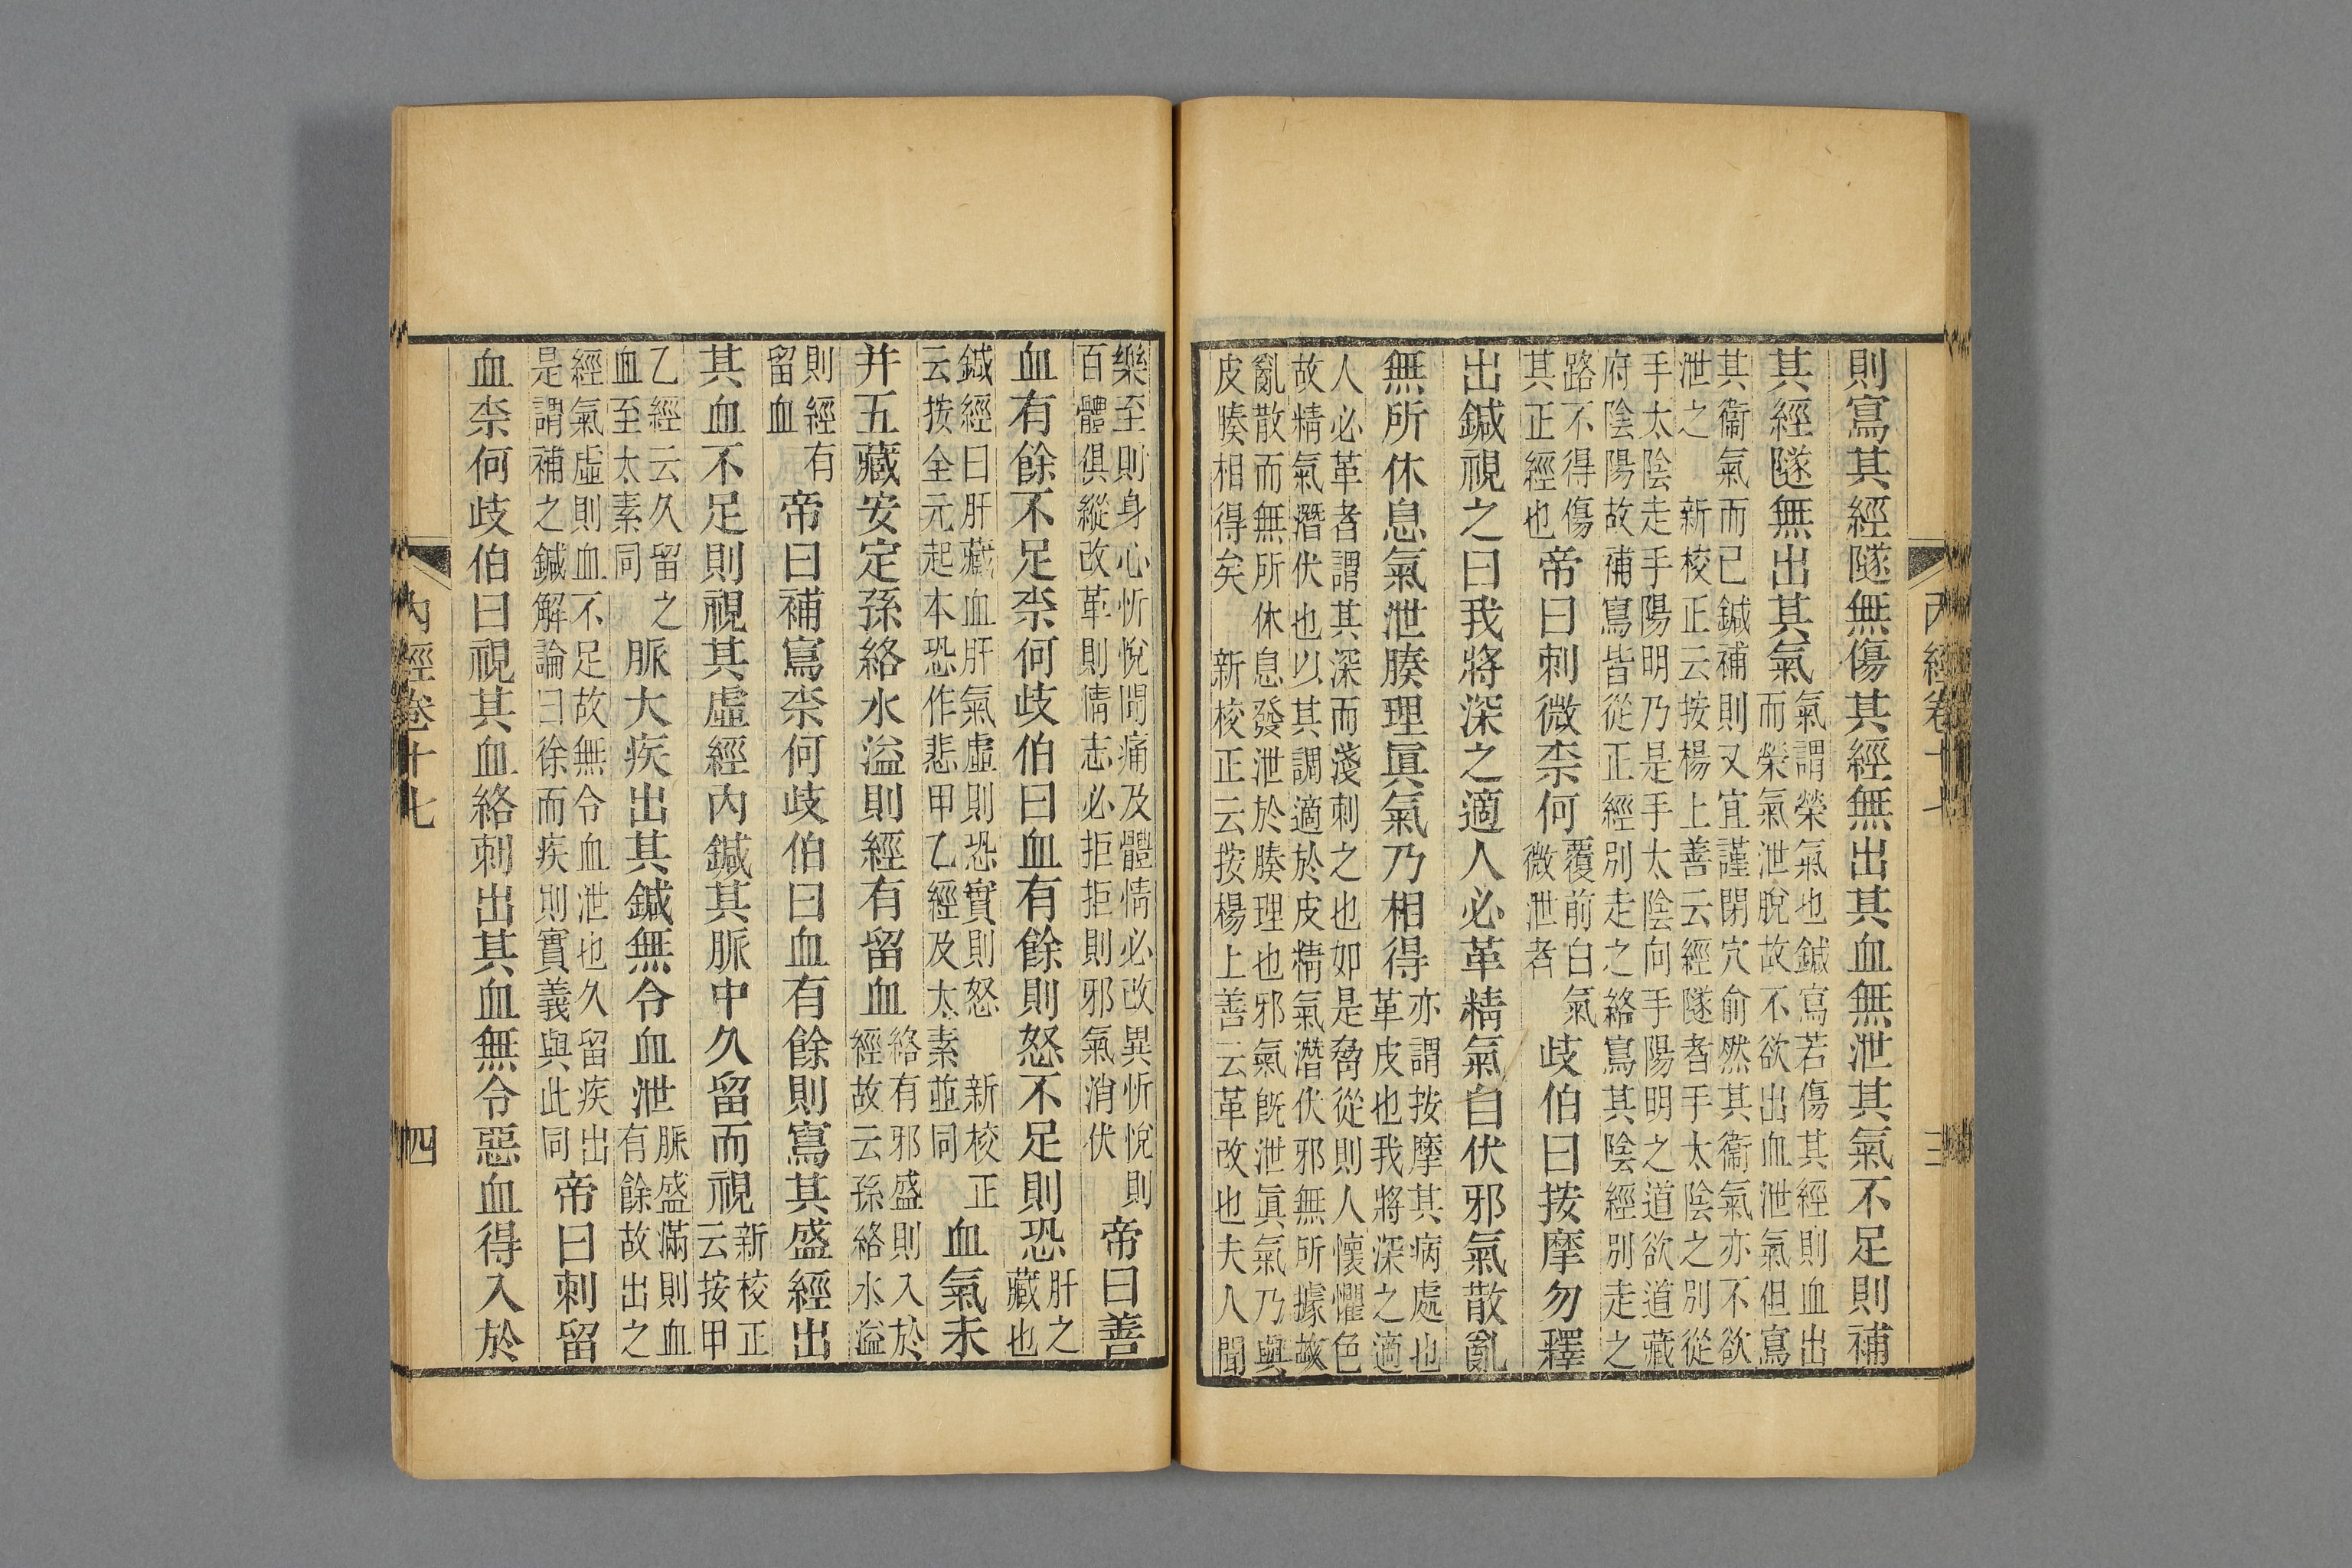 內經卷十七 三
則寫其經隧無傷其經無出其血無泄其氣不足則補
其經隧無出其氣
氣謂榮氣也鍼寫若傷其經則血出
而榮氣泄脫故不欲出血泄氣但寫
其衞氣而已鍼補則又宜謹閉穴俞然其衞氣亦不欲
泄之 新校正云按楊上善云經隧者手太陰之別從
手太陰走手陽明乃是手太陰向手陽明之道欲道藏
府陰陽故補寫皆從正經別走之絡寫其陰經別走之
路不得傷
其正經也
帝曰刺微柰何
覆前白氣
微泄者
歧伯曰按摩勿釋
出鍼視之曰我將深之適人必革精氣自伏邪氣散亂
無所休息氣泄腠理眞氣乃相得
亦謂按摩其病處也
革皮也我將深之適
人必革者謂其深而淺刺之也如是脅從則人懷懼色
故精氣潛伏也以其調適於皮精氣潛伏邪無所據故
亂散而無所休息發泄於腠理也邪氣旣泄眞氣乃與
皮腠相得矣 新校正云按楊上善云革改也夫人聞
樂至則身心忻悅聞痛及體情必改異忻悅則
百體俱縱改革則情志必拒拒則邪氣消伏
帝曰善
血有餘不足柰何歧伯曰血有餘則怒不足則恐
肝之
藏也
鍼經曰肝藏血肝氣虛則恐實則怒 新校正
云按全元起本恐作悲甲乙經及太素並同
血氣未
并五藏安定孫絡水溢則經有留血
絡有邪盛則入於
經故云孫絡水溢
則經有
留血
帝曰補寫柰何歧伯曰血有餘則寫其盛經出
其血不足則視其虛經內鍼其脈中久留而視
新校正
云按甲
乙經云久留之
血至太素同
脈大疾出其鍼無令血泄
脈盛滿則血
有餘故出之
經氣虛則血不足故無令血泄也久留疾出
是謂補之鍼解論曰徐而疾則實義與此同
帝曰刺留
血柰何歧伯曰視其血絡刺出其血無令惡血得入於
內經卷十七 四